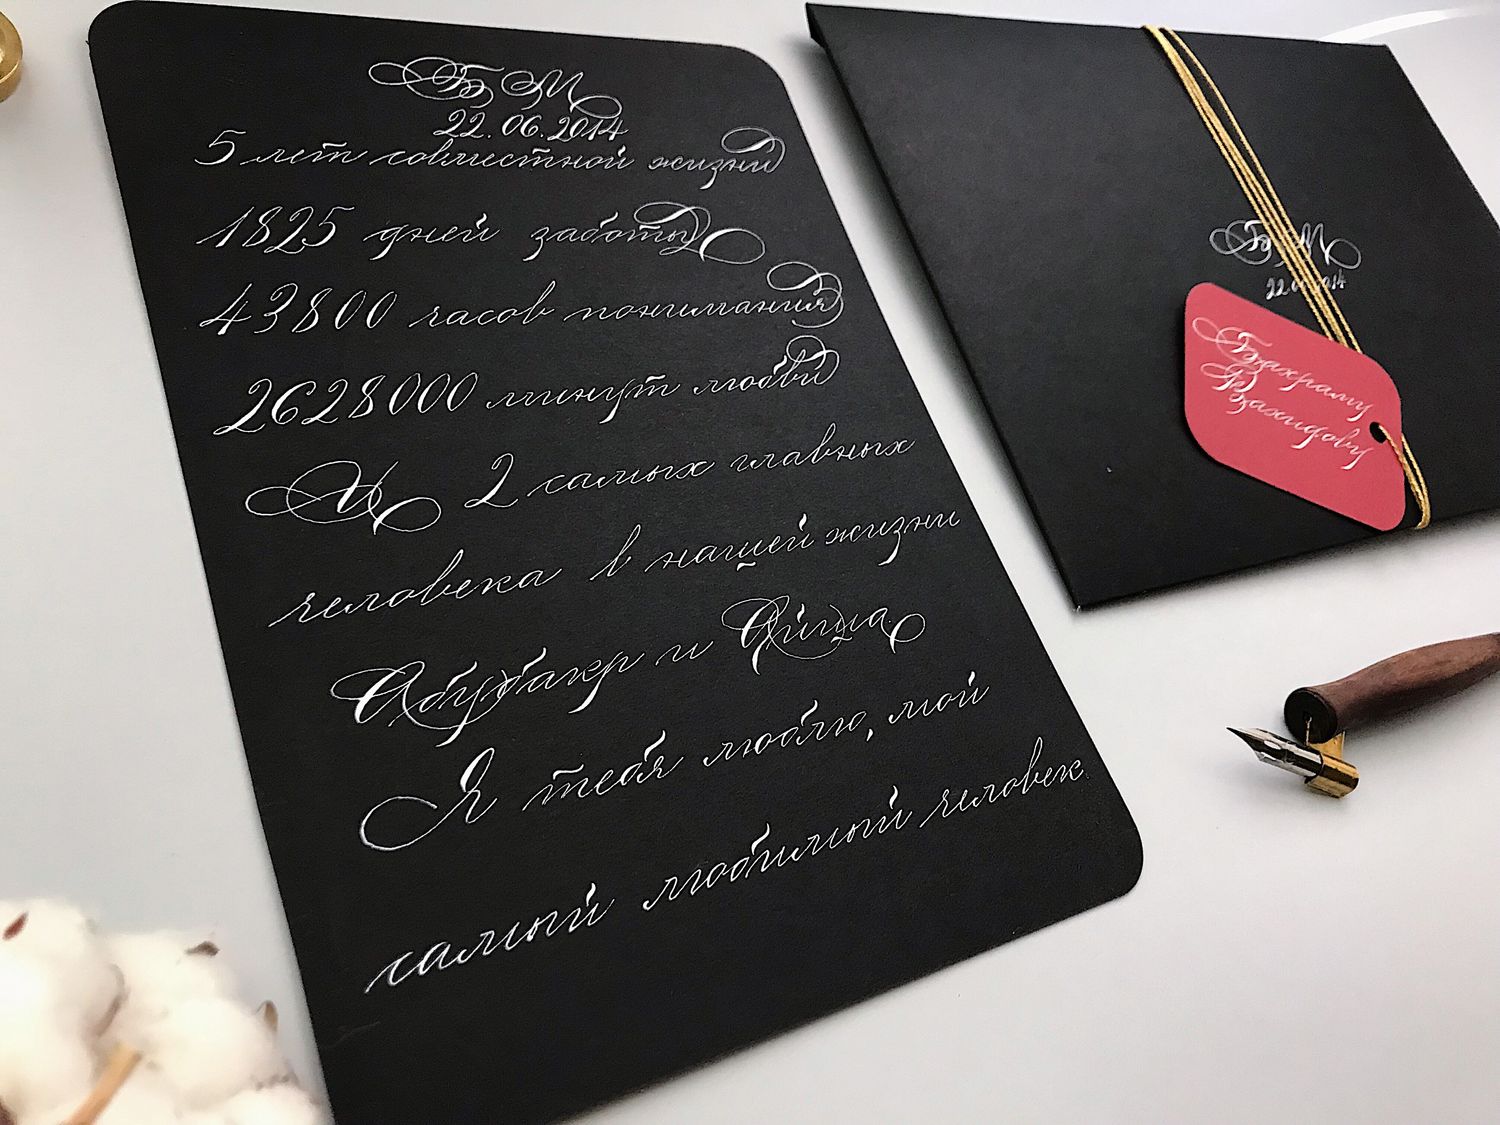 Б М
22.06.2014
5 лет совместной жизни
1825 дней заботы
43800 часов понимания
2628000 минут любви
И 2 самых главных
человека в нашей жизни
Абубакр и Айша
Я тебя люблю, мой
самый любимый человек
Б М
22.06.2014
Бахраму
Вахидову